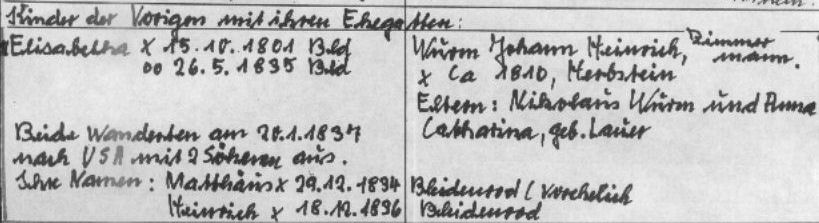 Kinder der Vorigen mit ihren Ehegatten:
Elisabetha x 15.10.1801 Bld
oo 26.5.1835 Bld
Würm Johann Heinrich, Zimmermann.
x Ca 1810, Herbstein
Eltern: Nikolaus Würm und Anna
Catharina, geb. Lauer
Beide Wanderten am 20.1.1837
nach USA mit 2 Söhnen aus.
Ihre Namen: Matthäus x 29.12.1834 Bleidenrod (Vorehelich
Heinrich x 18.12.1836 Bleidenrod